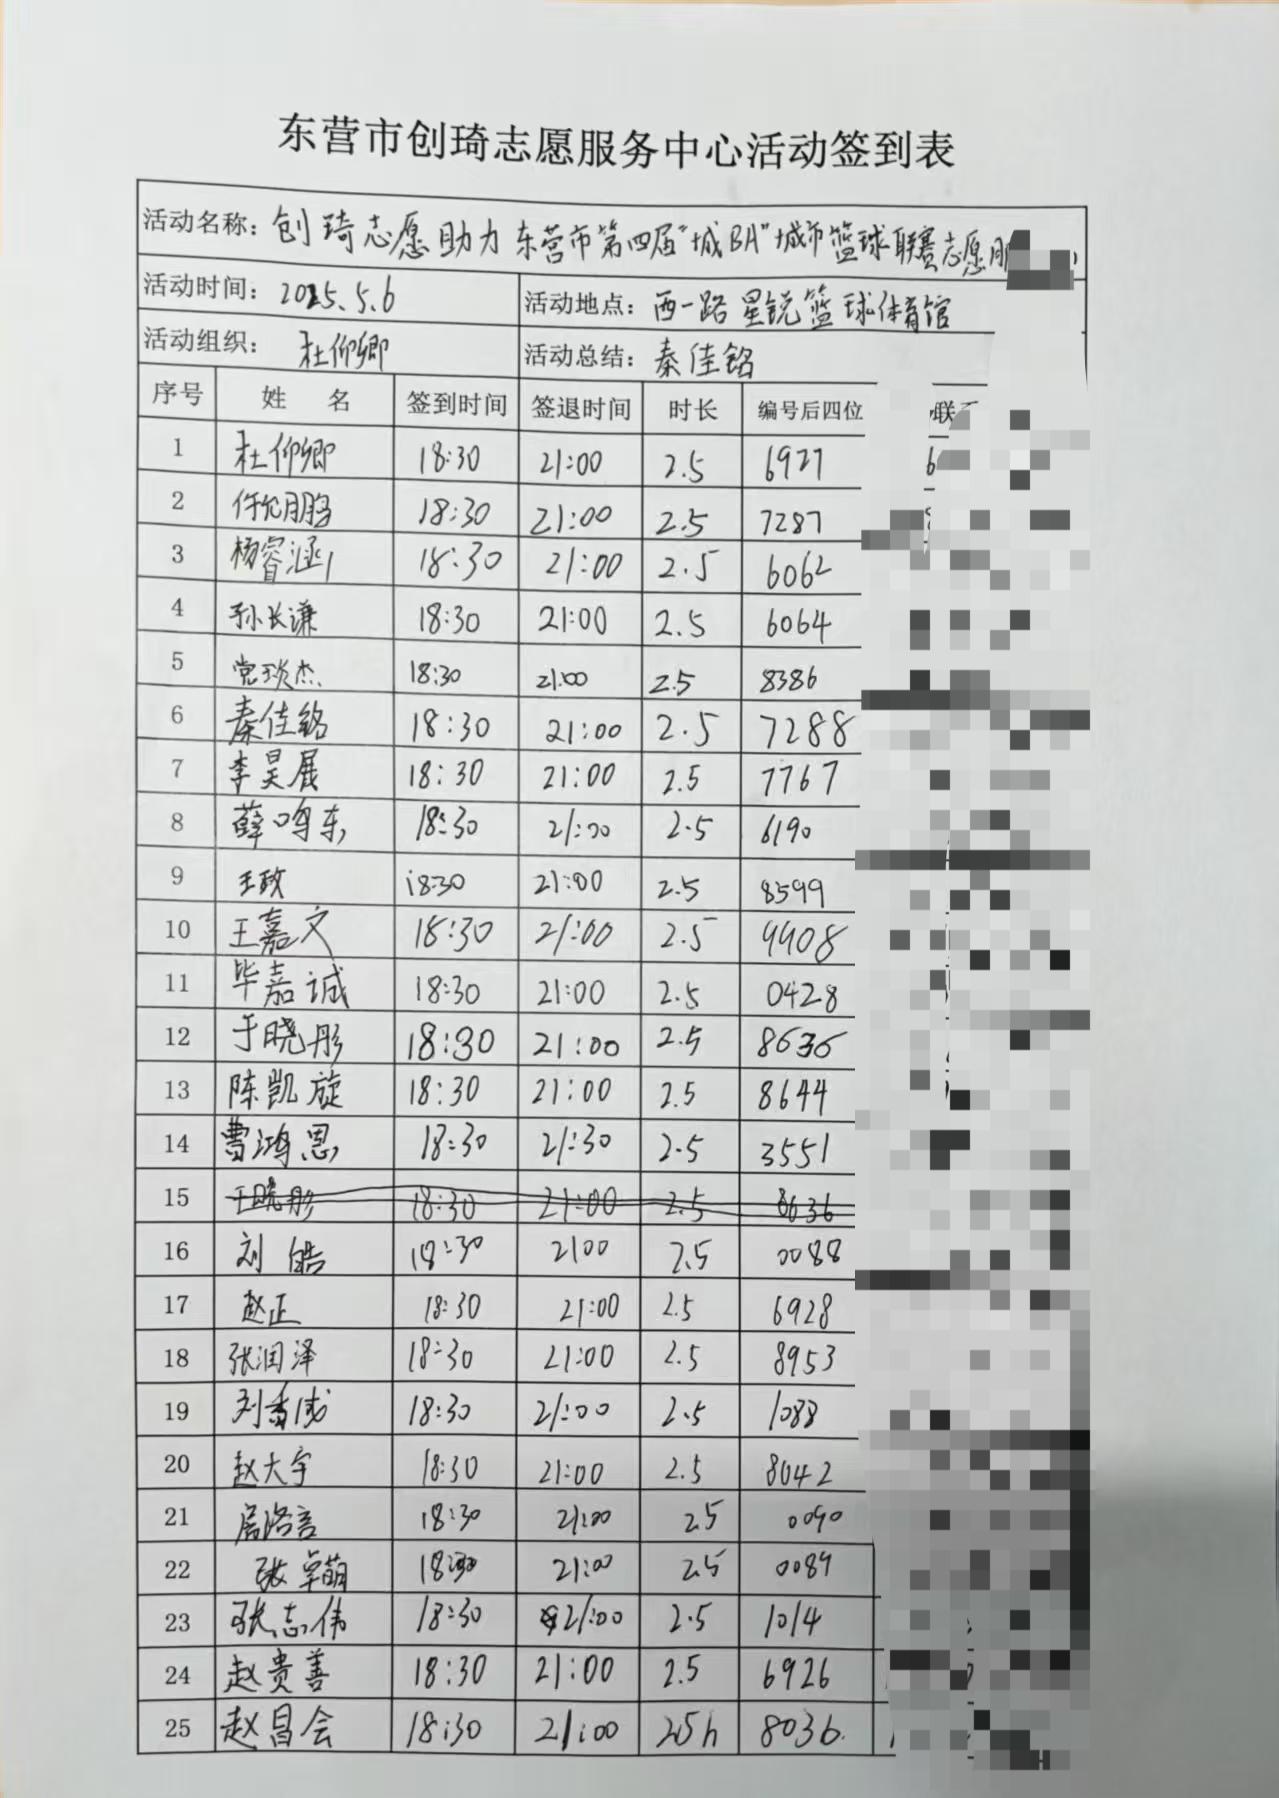 东营市创琦志愿服务中心活动签到表
活动名称: 创琦志愿助力东营市第四届"城BA"城市篮球联赛志愿
活动时间: 2025.5.6 活动地点: 西一路星锐篮球体育馆
活动组织: 杜仰卿 活动总结: 秦佳铭
序号 姓 名 签到时间 签退时间 时长 编号后四位 联
1 杜仰卿 18:30 21:00 2.5 6927 6
2 18:30 21:00 2.5 7287
3 杨睿涵 18:30 21:00 2.5 6062
4 孙长谦 18:30 21:00 2.5 6064
5 党琰杰 18:30 21:00 2.5 8386
6 秦佳铭 18:30 21:00 2.5 7288
7 李昊展 18:30 21:00 2.5 7767
8 薛鸣东 18:30 21:00 2.5 6190
9 王政 18:30 21:00 2.5 8599
10 王嘉文 18:30 21:00 2.5 9908
11 毕嘉诚 18:30 21:00 2.5 0428
12 于晓彤 18:30 21:00 2.5 8636
13 陈凯旋 18:30 21:00 2.5 8644
14 曹鸿恩 18:30 21:30 2.5 3551
15 于晓彤 18:30 21:00 2.5 8636
16 刘皓 18:30 2100 2.5 0088
17 赵正 18:30 21:00 2.5 6928
18 张润泽 18:30 21:00 2.5 8953
19 18:30 21:00 2.5 1088
20 赵大宇 18:30 21:00 2.5 8042
21 18:30 21:00 2.5 0090
22 张卓萌 18:30 21:00 2.5 0089
23 张志伟 18:30 21:00 2.5 1014
24 赵贵善 18:30 21:00 2.5 6926
25 赵昌会 18:30 21:00 25h 8036.